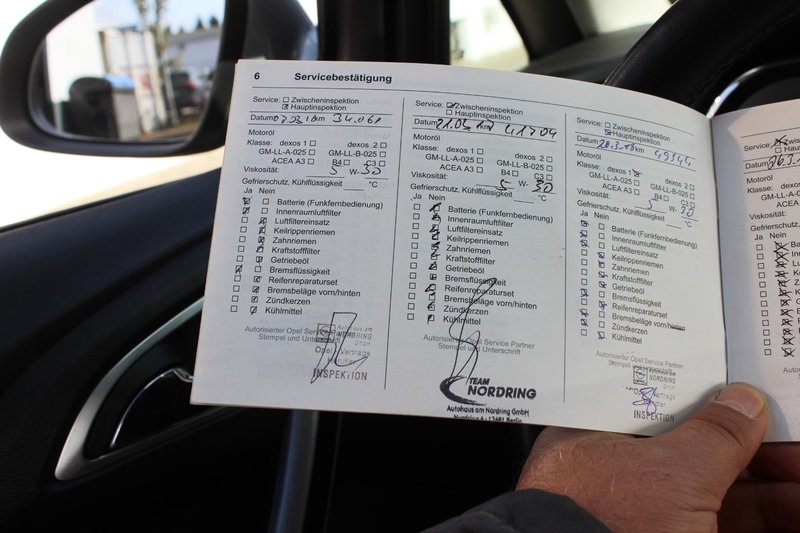 6 Servicebestätigung
Service: Zwischeninspektion
Hauptinspektion
Datum km 34.061
Motoröl
Klasse: dexos 1 dexos 2
GM-LL-A-025 GM-LL-B-025
ACEA A3 B4 C3
Viskosität: 5 W- 30
Gefrierschutz, Kühlflüssigkeit °C
Ja Nein
Batterie (Funkfernbedienung)
Innenraumluftfilter
Luftfiltereinsatz
Keilrippenriemen
Zahnriemen
Kraftstofffilter
Getriebeöl
Bremsflüssigkeit
Reifenreparaturset
Bremsbeläge vorn/hinten
Zündkerzen
Kühlmittel
Autorisierter Opel Service Partner
Stempel und Unterschrift
Autohaus am
NORDRING
GmbH
Opel Vertrags
Händler
INSPEKTION
Service: Zwischeninspektion
Hauptinspektion
Datum 21.03 km 41704
Motoröl
Klasse: dexos 1 dexos 2
GM-LL-A-025 GM-LL-B-025
ACEA A3 B4 C3
Viskosität: 5 W- 30
Gefrierschutz, Kühlflüssigkeit °C
Ja Nein
Batterie (Funkfernbedienung)
Innenraumluftfilter
Luftfiltereinsatz
Keilrippenriemen
Zahnriemen
Kraftstofffilter
Getriebeöl
Bremsflüssigkeit
Reifenreparaturset
Bremsbeläge vorn/hinten
Zündkerzen
Kühlmittel
Autorisierter Opel Service Partner
Stempel und Unterschrift
TEAM
NORDRING
Autohaus am Nordring GmbH
Service: Zwischeninspektion
Hauptinspektion
Datum 20.3.18 km 49544
Motoröl
Klasse: dexos 1 dexos 2
GM-LL-A-025 GM-LL-B-025
ACEA A3 B4 C3
Viskosität: 5 W- 30
Gefrierschutz, Kühlflüssigkeit °C
Ja Nein
Batterie (Funkfernbedienung)
Innenraumluftfilter
Luftfiltereinsatz
Keilrippenriemen
Zahnriemen
Kraftstofffilter
Getriebeöl
Bremsflüssigkeit
Reifenreparaturset
Bremsbeläge vorn/hinten
Zündkerzen
Kühlmittel
Autorisierter Opel Service Partner
Stempel und Unterschrift
Autohaus am
NORDRING
GmbH
INSPEKTION
Service:
Datum
Motoröl
Klasse: dexos
GM-LL-A-02
ACEA A
Viskosität:
Gefrierschutz,
Ja Nein